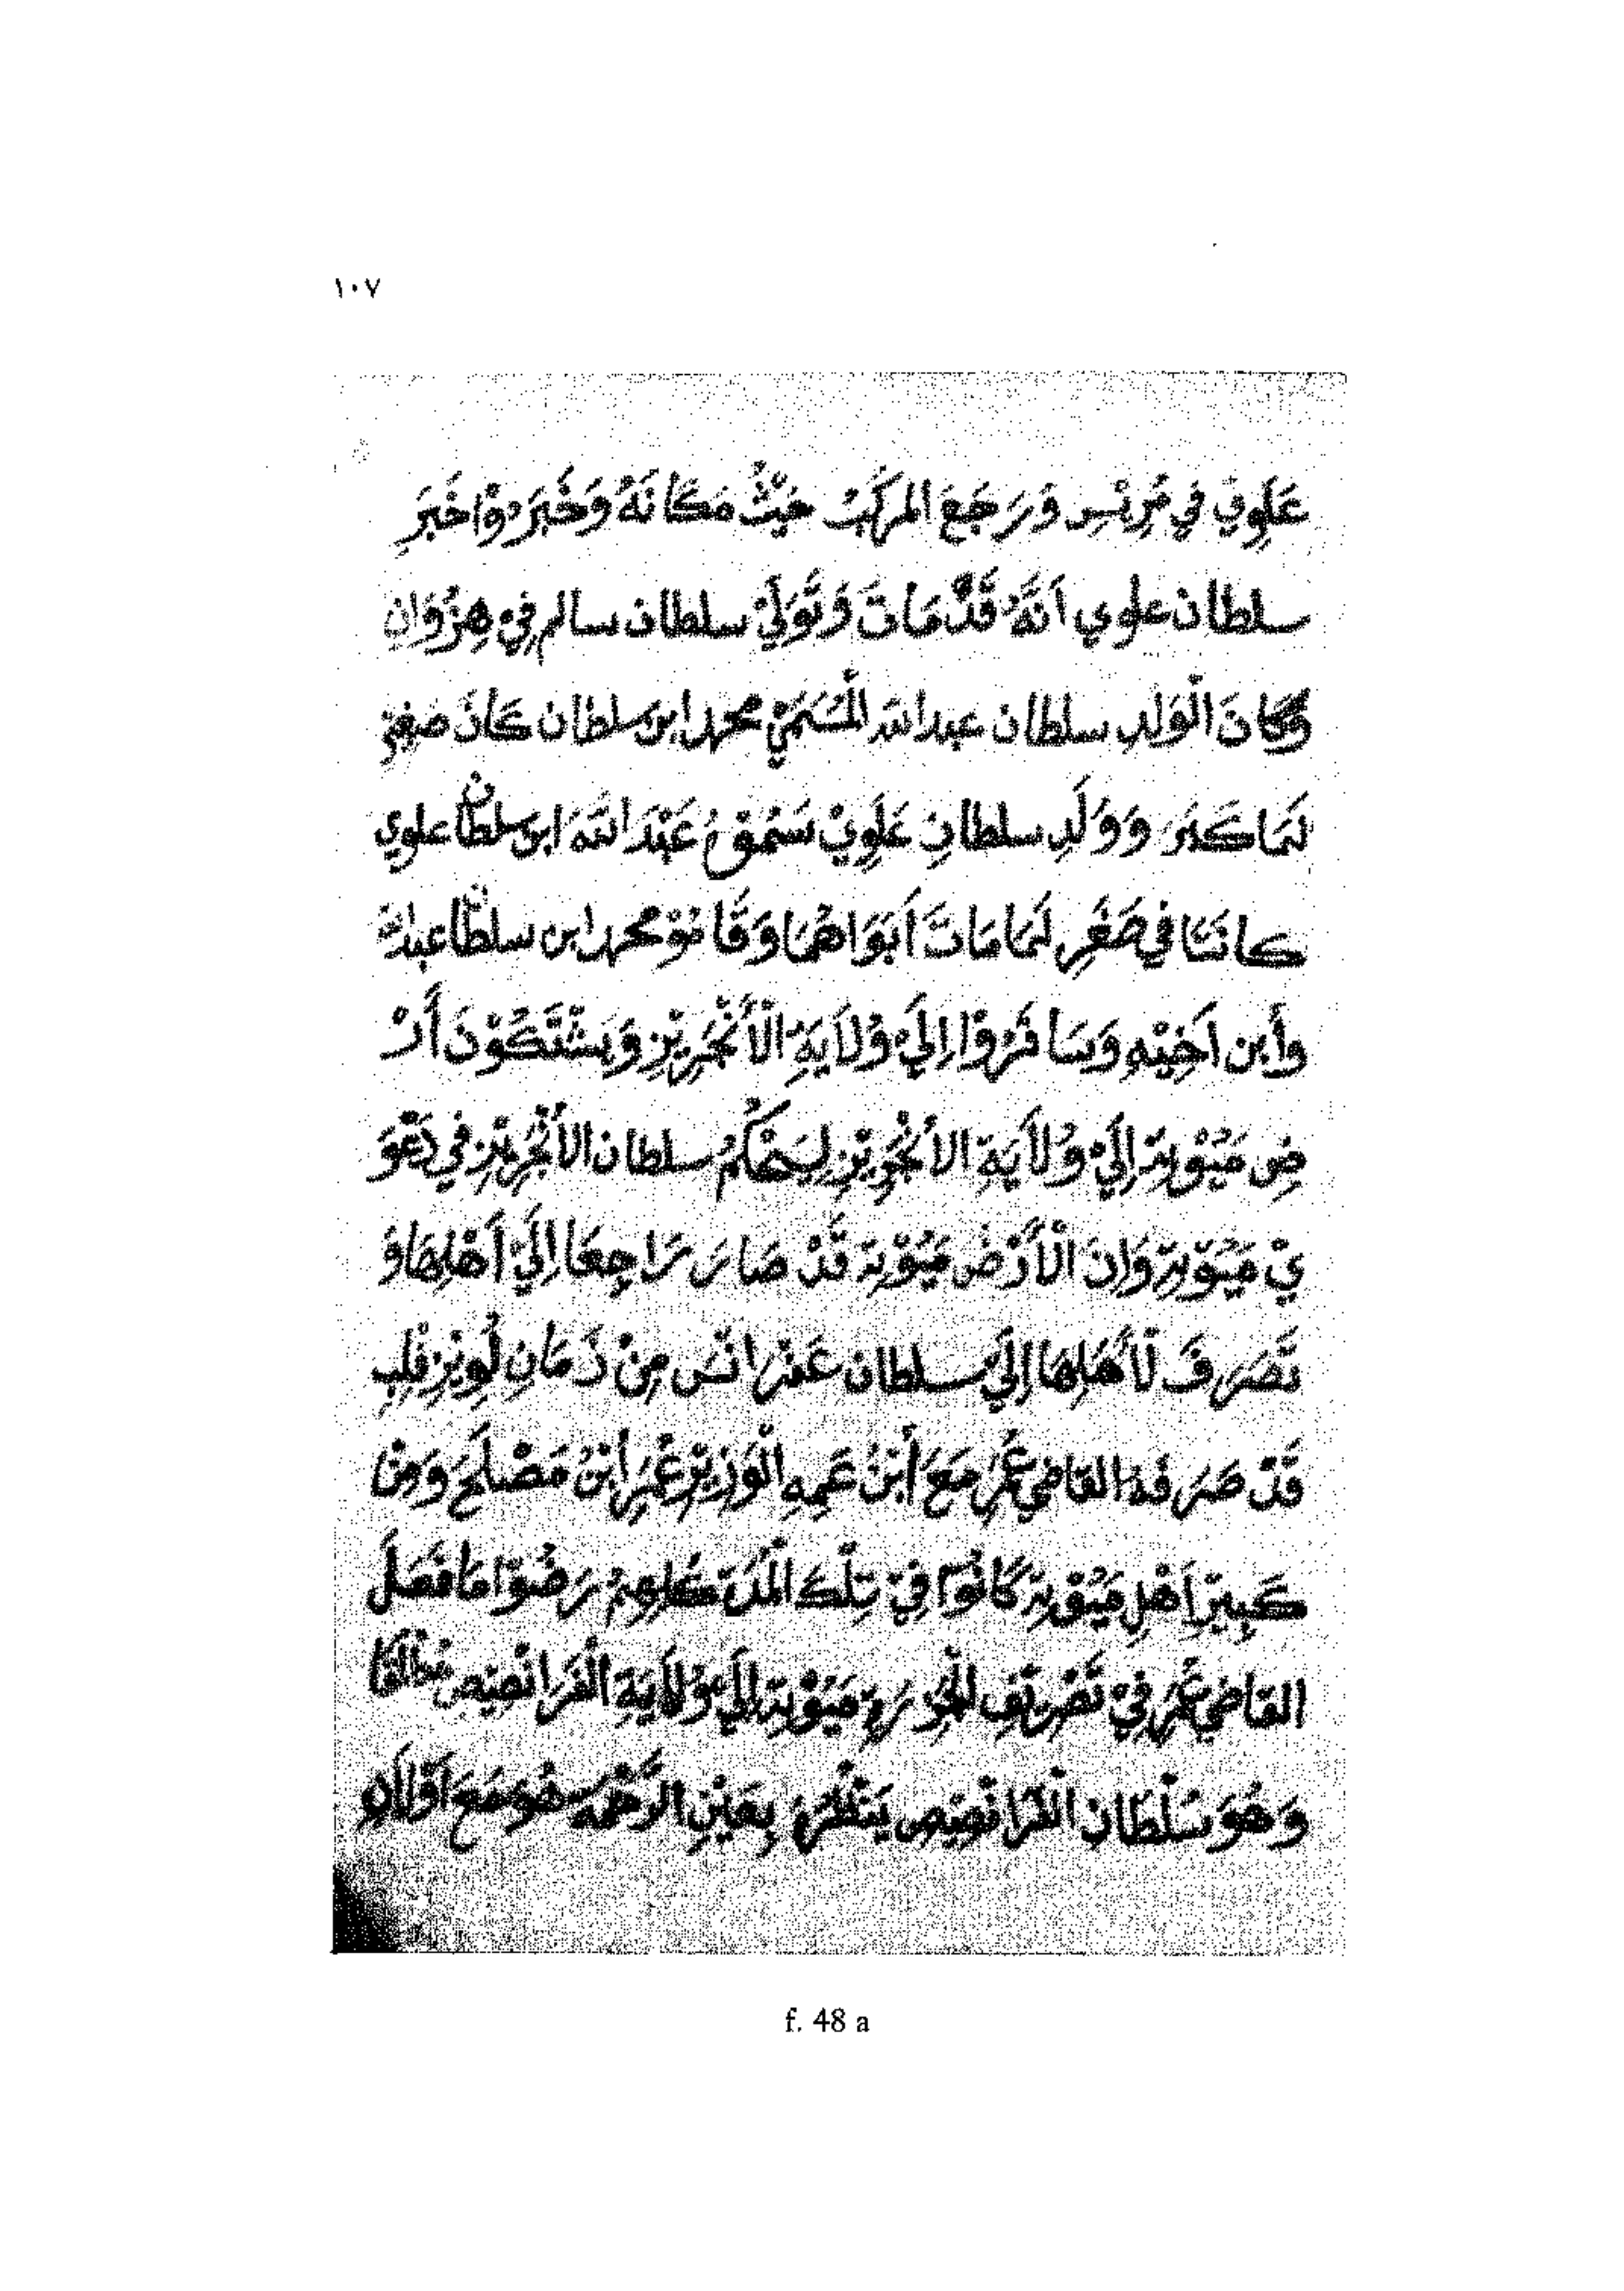 ١٠٧
عَلَوِي فِي مُرِيْسِ وَرَجَعَ المركَبُ حَيْثُ مَكَانَهُ وَخَبَرَدوْا خَبَرِ
سلطان علوي اَنَّهُ قَدْ مَاتَ وَتَوَلَيْ سلطان سالم فِيْ هِنْزُوَانِ
وَكَانَ الْوَلَدِ سلطان عبدالله الْمُسَمَيْ محمد ابن سلطان كَانَ صَغِيْ
لَمَا كَبَرَ وَوَلَدِ سلطانِ عَلَوِيْ سَمُوْهُ عَبْدَ اللَّهَ ابن سلطان علوي
كانَتَا فِي صَغَرِ لَمَا مَاتَ اَبَوَاهُمَا وَقَامُوْ محمد ابن سلطا عبدالله
وأبن اَخِيْهِ وَسَافَرُوْا اِلَيْ وُلَايَةِ الْأَنْجَرِيْزِ وَيَشْتَكُوْنَ أَرْ
ضِ مَيُوْتِهَ اِلَيْ وُلَايَةِ الأنْجَرِيْزِ لِيَحْكُمُ سلطان الأَنْجَرِيْزِ فِي دَعْوَ
يْ مَيُوْتِهَ وَاِنَ الْأَرْضُ مَيُوْتِهَ قَدْ صَارَ رَاجِعَا اِلَيْ اَهْلِهَا وَ
تَصَرَفَ لَأَهْلِهَا اِلَيْ سلطان فَرَانَسَ مِنْ زَمَانِ لُوِيْزِ فِلِبِ
قَدْ صَرَفَهُ القاضِي عُمَرُ مَعَ أَبْنُ عَمِهِ الْوَزِيْرِ عُمَرِ أَبْنُ مَصْلَحَ وَمِنْ
كَبِيْرِ اَهْلِ مَيُوْتِهَ كَانُوْا فِيْ تِلْكَ الْمُدَّةِ كُلُهِمْ رَضُوْا مَا فَصَلَ
القاضِي عُمَرُ فِيْ تَصْرِيْفِ الْجَزِيْرَةِ مَيُوْتِهَ اِلَيْ وُلَايَةِ الْفَرَانْصِيْصِ
وَهُوَ سُلْطَان الْفَرَانْصِيْصِ يَنْظُرُهُ بِعَيْنِ الرَّحْمَةِ هُوَ مَعَ اَوْلَادِهِ
f. 48 a